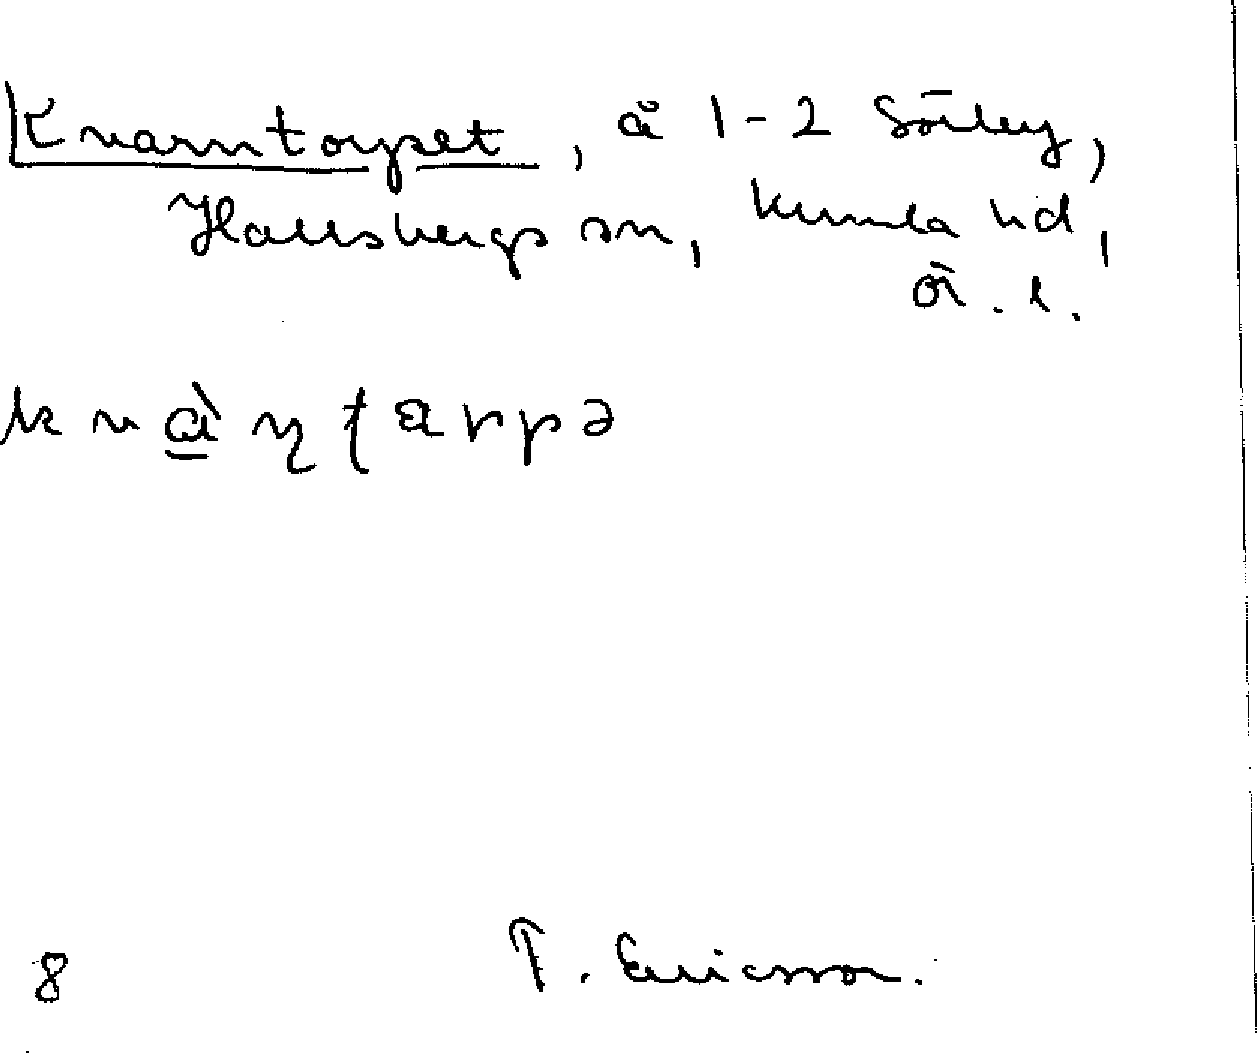 Kvarntorpet, å 1-2 Sörby,
Hallsbergs sn, Kumla hd,
Ör. l.
kvàɳʈarpə
8 T. Ericsson.